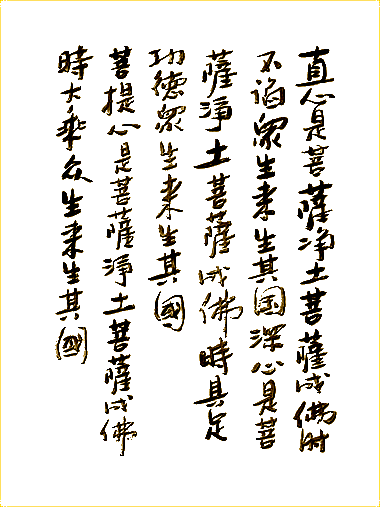 直心是菩薩净土菩薩成佛时
不谄眾生来生其国深心是菩
薩净土菩薩成佛時具足
功德眾生来生其國
菩提心是菩薩淨土菩薩成佛
時大乘众生来生其國